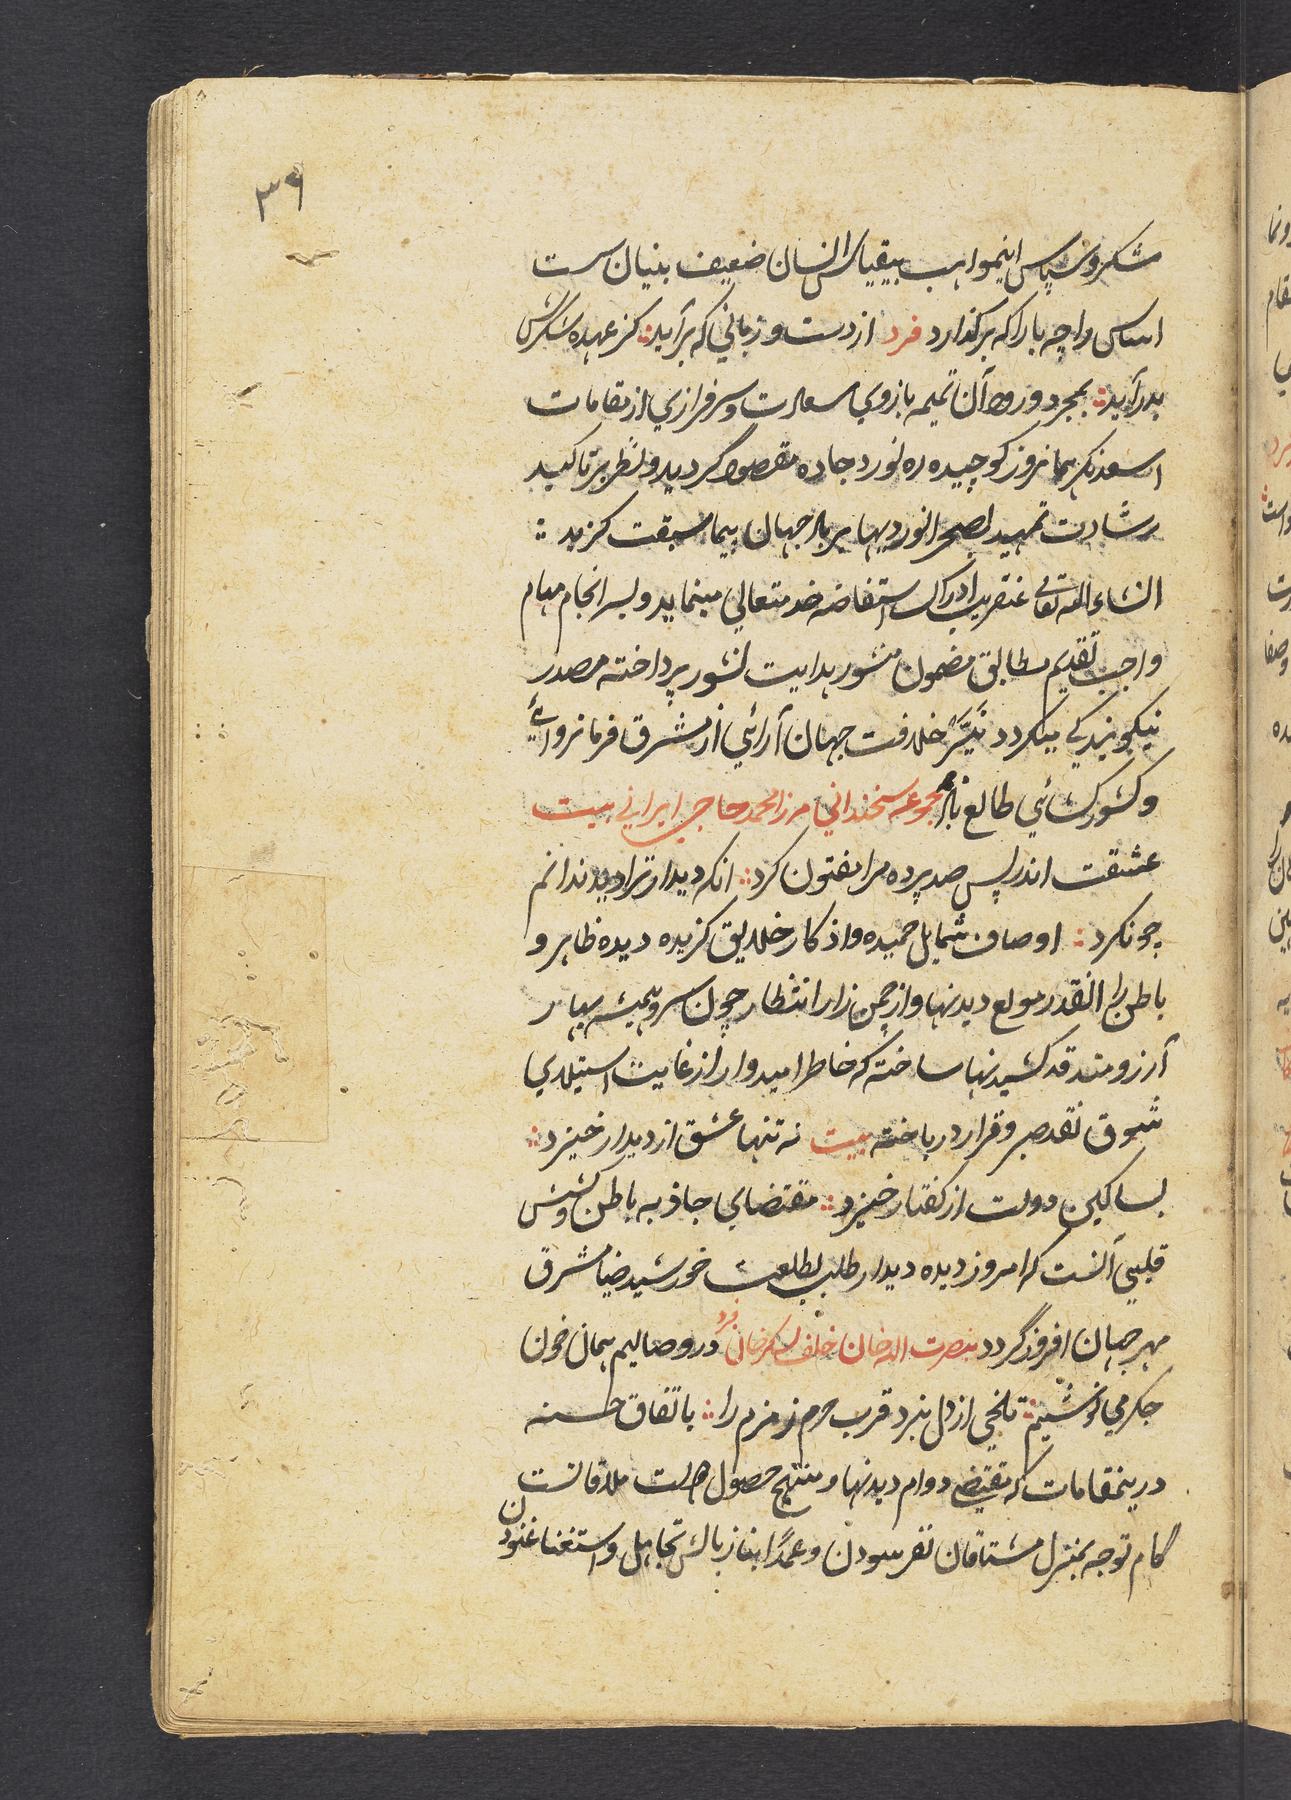 ۳۶
شکر و سپاس اینمواهب بیقیاس انسان ضعیف بنیان سست
اساس را چه یارا که برگذارد فرد از دست و زبانی که برآید کز عهده شکرش
بدر آید بمجرد ورود آن تمیمه بازوی سعادت و سرفرازی از مقامات
اسعد نگر همانروز کوچیده ره نورد جاده مقصود گردید و نظر بر تاکید
رشادت تمهید بصحرا نوردیها بر باد جهان پیما سبقت گزید
انشاء الله تعالی عنقریب ادراک استفاضه خدمتعالی مینماید و بسرانجام مهام
واجب تقدیم مطابق مضمون منشور هدایت نشور پرداخته مصدر
نیکو بندگی میگردد نیّر خلافت جهان آرائی از مشرق فرمانروائی
و کشورکشائی طالع باد مجموعه سخندانی مرزا محمد حاجی ایرانی بیت
عشقت اندر پس صد پرده مرا مفتون کرد انکه دیدار ترا دید ندانم
چون کرد اوصاف شمایل حمیده و اذکار خلایق گزیده دیده ظاهر و
باطن را انقدر مولع دیدنها و از چمن زار انتظار چون سرو همیشه بهار
آرزومند قد کشیدنها ساخته که خاطر امیدوار از غایت استیلای
شوق نقد صبر و قرار در باخته بیت نه تنها عشق از دیدار خیزد
بسا کین دولت از گفتار خیزد مقتضای جاذبه باطن و کشش
قلبی آنست که امروز دیده دیدار طلب بطلعت خورشید ضیا مشرق
مهر جهان افروز گردد بنصرت الله خان خلف لسکر خان فرد در وصالیم همان خون
جگر می نوشیم تلخی از دل نبرد قرب حرم زمزم را باتفاق حسنه
درینمقامات که مقتضی دوام دیدنها و منتج حصول حالت ملاقاتست
گام توجه بمنزل مشتاقان نفرسودن و عمداً ابناز بالش تجاهل و استغنا غنودن